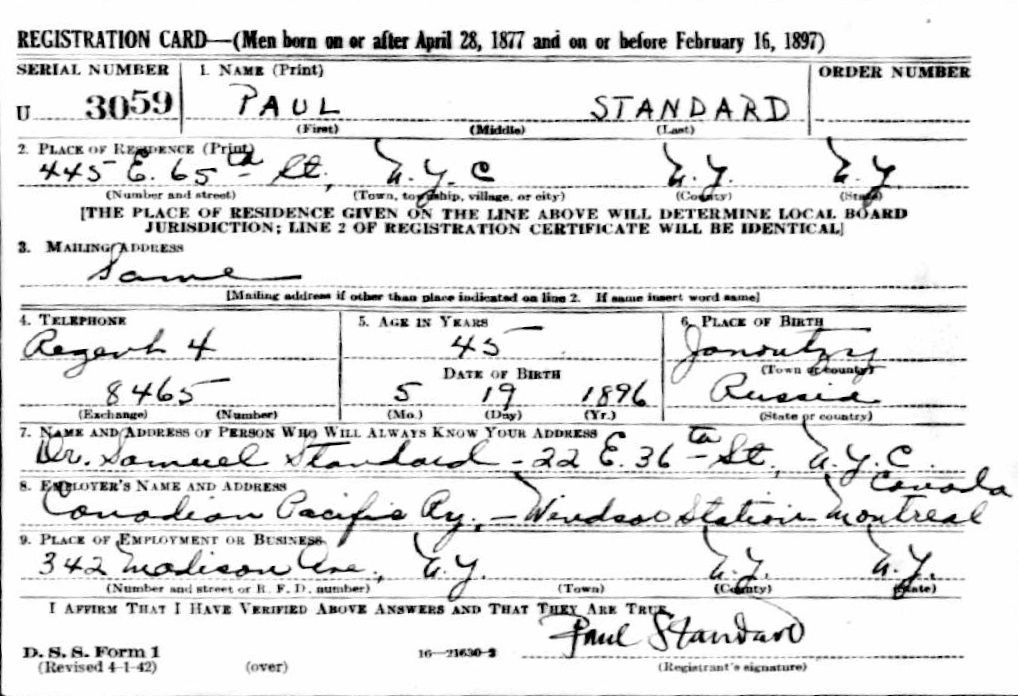 REGISTRATION CARD—(Men born on or after April 28, 1877 and on or before February 16, 1897)
SERIAL NUMBER 1. NAME (Print) ORDER NUMBER
U 3059 PAUL STANDARD
(First) (Middle) (Last)
2. PLACE OF RESIDENCE (Print)
445 E. 65th St., N.Y.C N.Y. N.Y.
(Number and street) (Town, township, village, or city) (County) (State)
[THE PLACE OF RESIDENCE GIVEN ON THE LINE ABOVE WILL DETERMINE LOCAL BOARD
JURISDICTION; LINE 2 OF REGISTRATION CERTIFICATE WILL BE IDENTICAL]
3. MAILING ADDRESS
Same
[Mailing address if other than place indicated on line 2. If same insert word same]
4. TELEPHONE 5. AGE IN YEARS 6. PLACE OF BIRTH
Regent 4 45
DATE OF BIRTH (Town or county)
8465 5 19 1896 Russia
(Exchange) (Number) (Mo.) (Day) (Yr.) (State or country)
7. NAME AND ADDRESS OF PERSON WHO WILL ALWAYS KNOW YOUR ADDRESS
Dr. Samuel Standard - 22 E. 36th St., N.Y.C.
8. EMPLOYER'S NAME AND ADDRESS Canada
Canadian Pacific Ry., - Windsor Station - Montreal
9. PLACE OF EMPLOYMENT OR BUSINESS
342 Madison Ave., N.Y. N.Y. N.Y.
(Number and street or R. F. D. number) (Town) (County) (State)
I AFFIRM THAT I HAVE VERIFIED ABOVE ANSWERS AND THAT THEY ARE TRUE.
Paul Standard
D. S. S. Form 1 16—21630-2
(Revised 4-1-42) (over) (Registrant's signature)